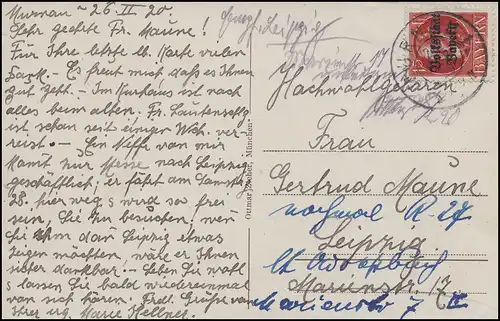 Murnau, 26. II 20
Sehr geehrte Fr. Maune!
Für Ihre letzte lb. Karte vielen
Dank. Es freut mich daß es Ihnen
gut geht. - Im Kurhaus ist noch
alles beim alten. Fr. Lautenschlg
ist schon seit einiger Woh. ver-
reist. - Ein Neffe von mir
kommt zur Messe nach Leipzig
geschäftlich; er fährt am Samstg
28. hier weg u wird so frei
sein, Sie zu besuchen. wen
Sie ihm dan Leipzig etwas
zeigen möchten, wäre er Ihnen
sicher dankbar. - Leben Sie wohl
u lassen Sie bald wiedereinmal
von sich hören. Frdl. Grüße von
Ihrer erg. Marie Hellner
Ottmar Zieher, München
Leipzig
Volksstaat
Bayern
15
BAYERN
Hochwohlgeboren
Frau
Gertrud Maune
nochmal R. 27
Leipzig
lt Adreßbuch
Marienstr. 17
Marienstr 7 II